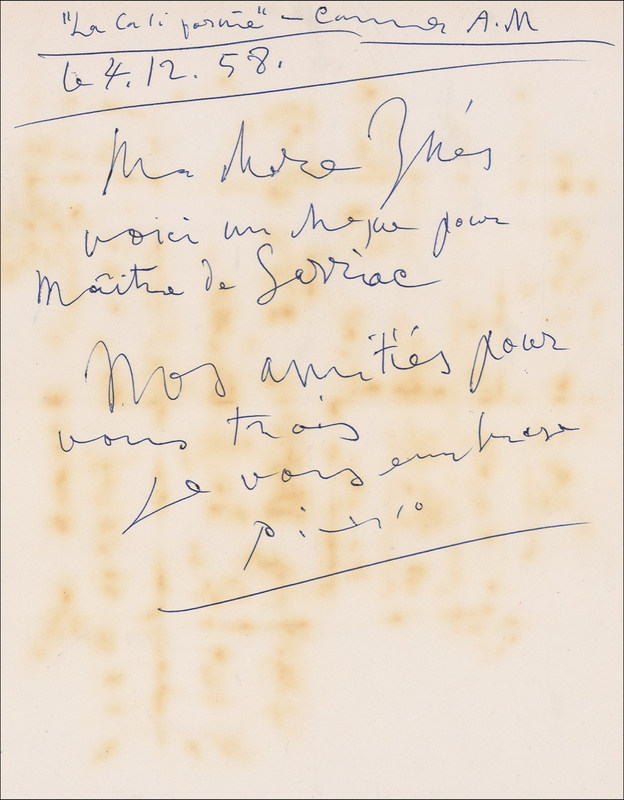 "La Californie" – Cannes A.M
le 4.12.58.
Ma chère Inès
voici un chèque pour
Maître de Sarriac
Nos amitiés pour
vous trois
Je vous embrasse
Picasso